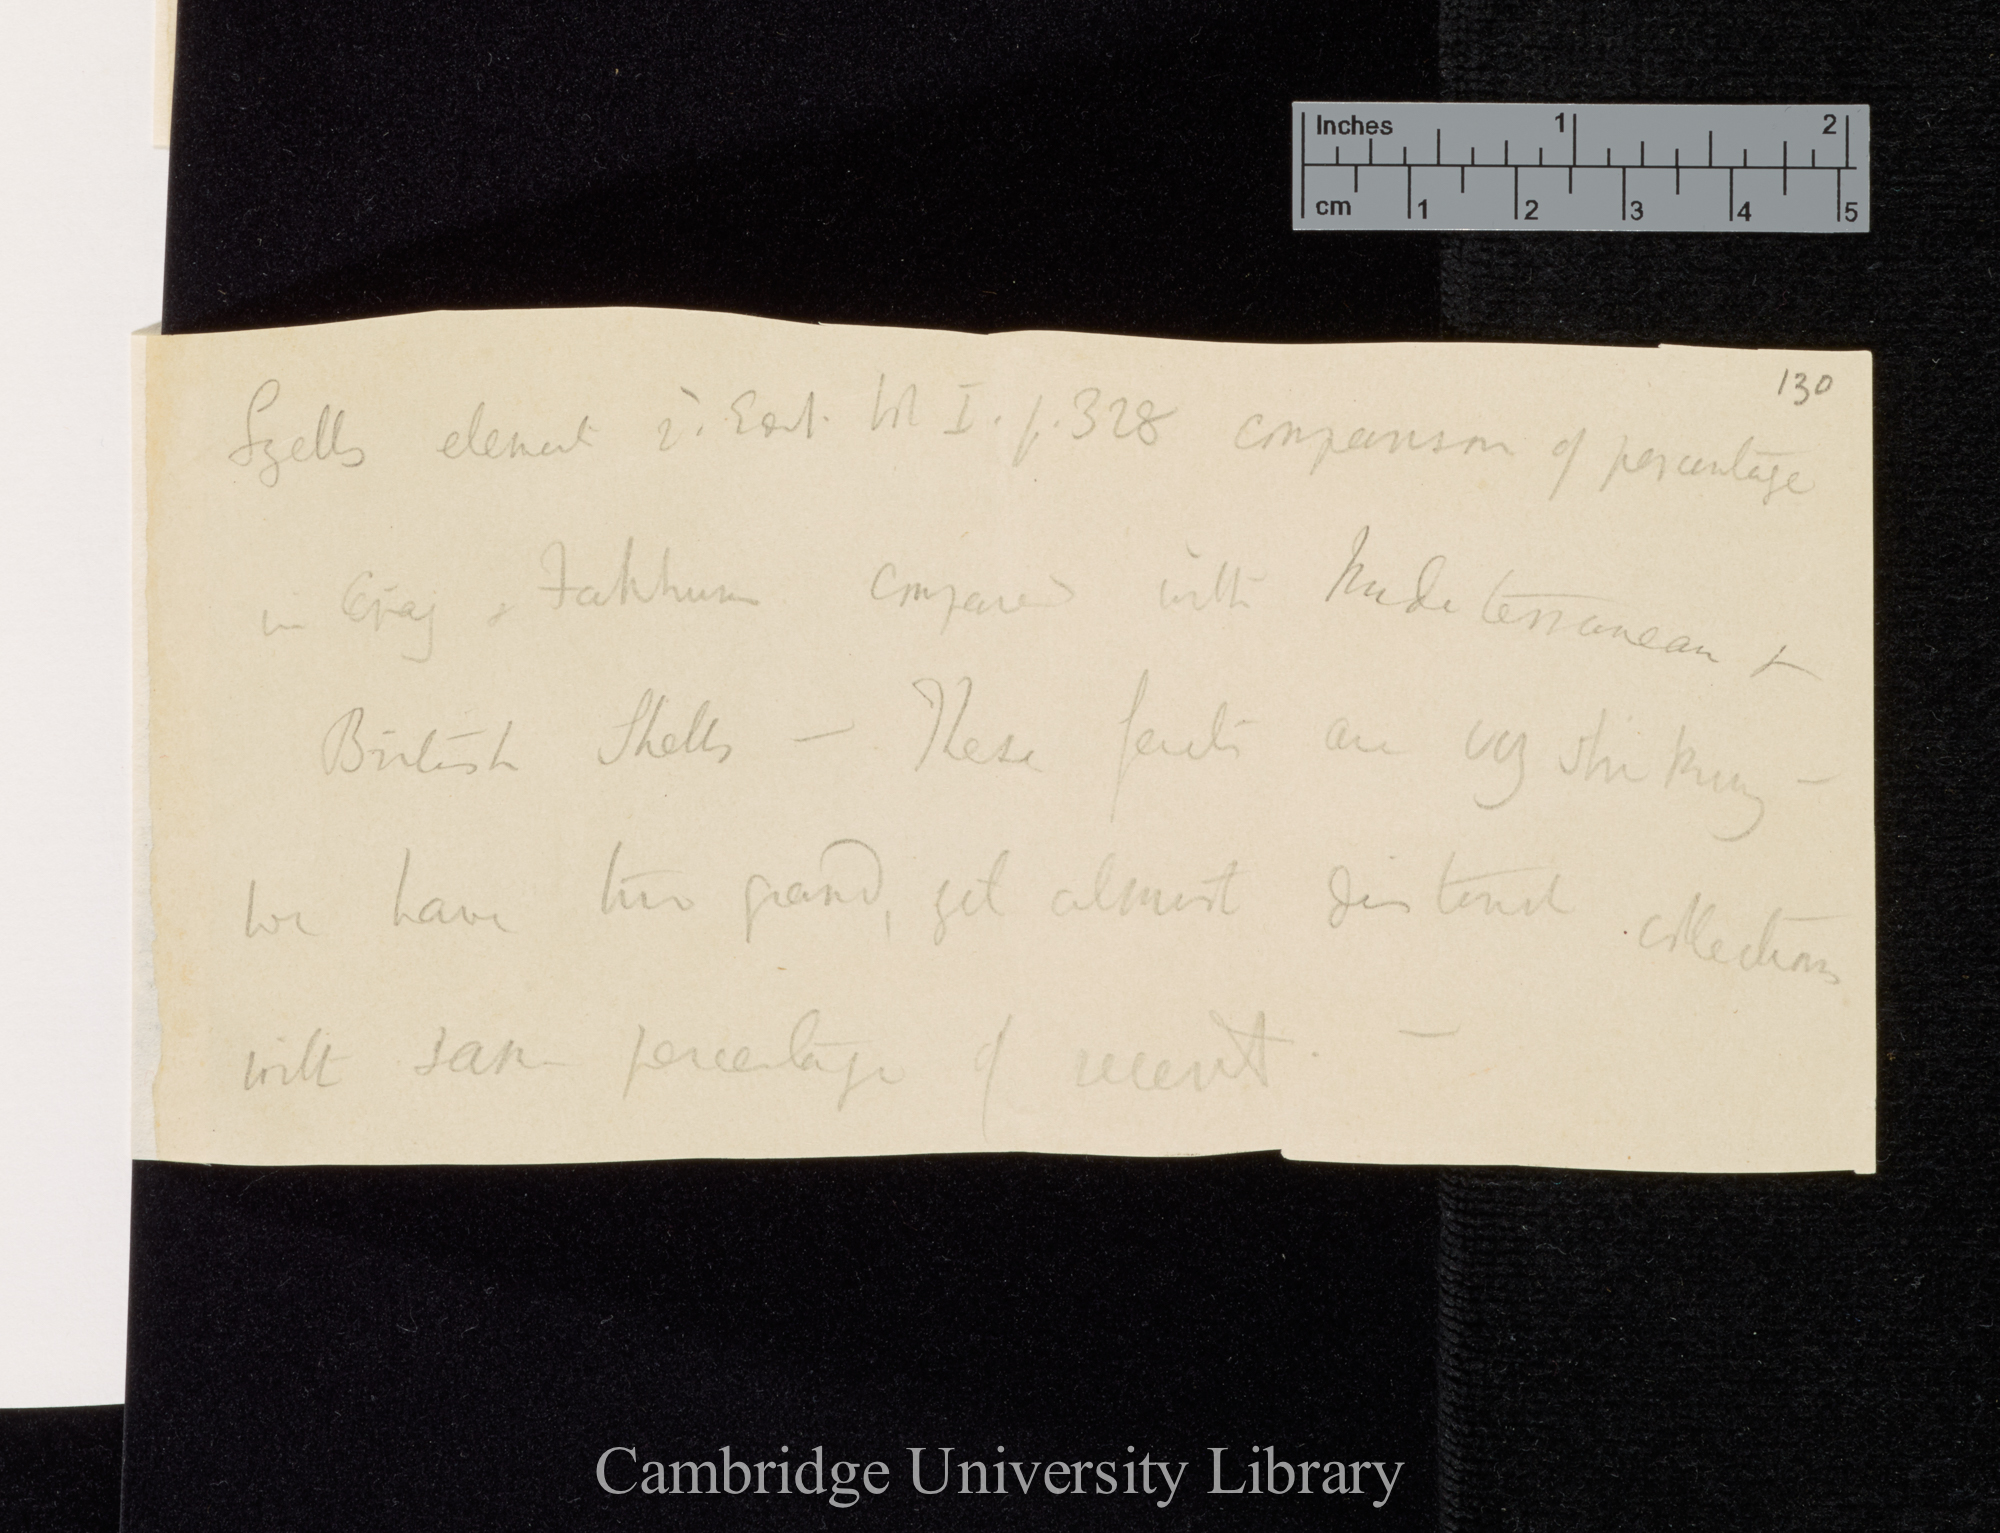 Inches 1 2
cm 1 2 3 4 5
130
Lyells element 2ᵈ. Edit. Vol I. p. 328 comparison of percentage
in Crag & compared with Mediterranean &
British Shells — These facts are very striking —
we have two grand, yet almost distinct collections
with same percentage of recent. —
Cambridge University Library